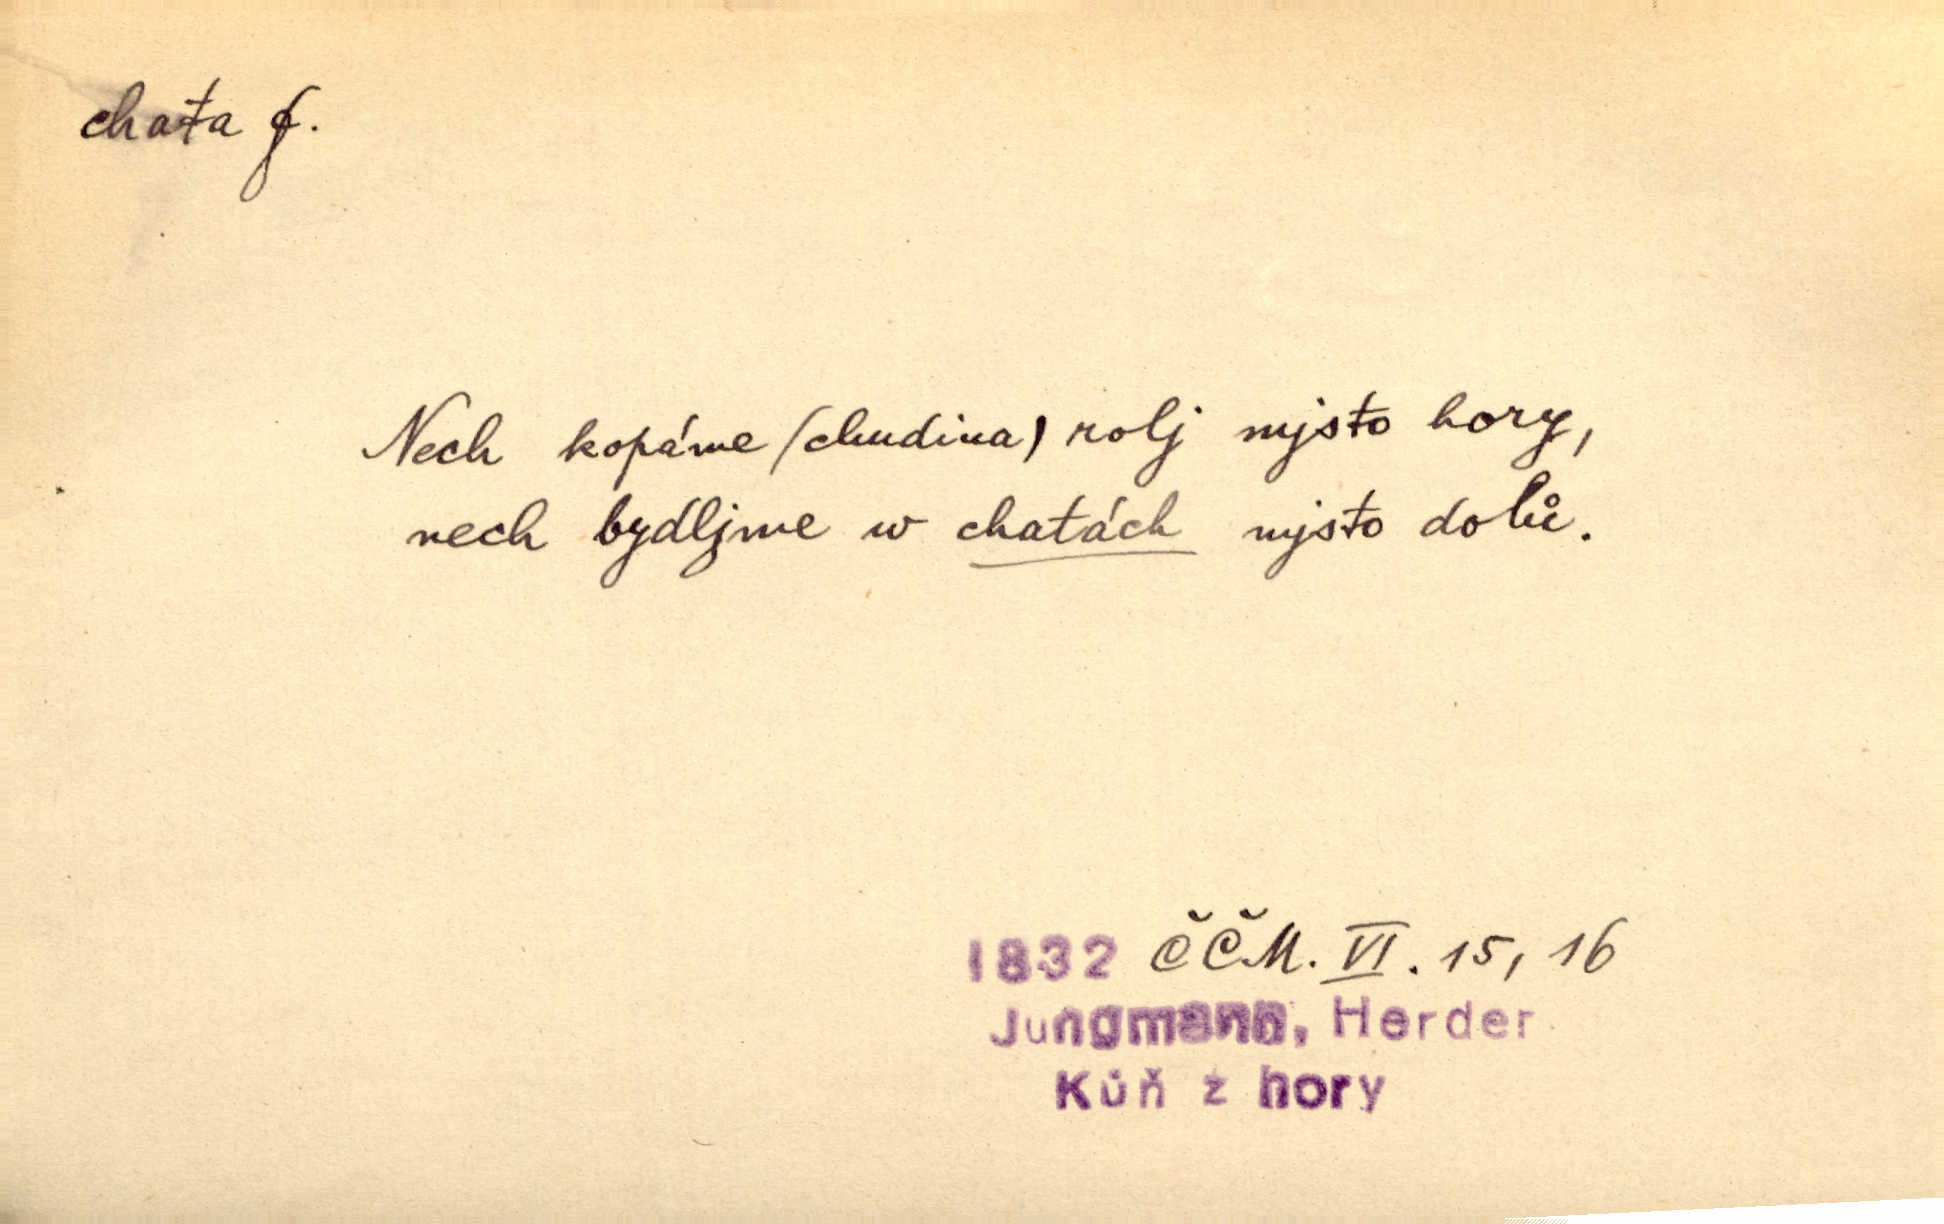 chata f.
Nech kopáme (chudina) rolj mjsto hory,
nech bydljme w chatách mjsto dolů.
1832 ČČM. VI. 15, 16
Jungmann, Herder
Kůň z hory